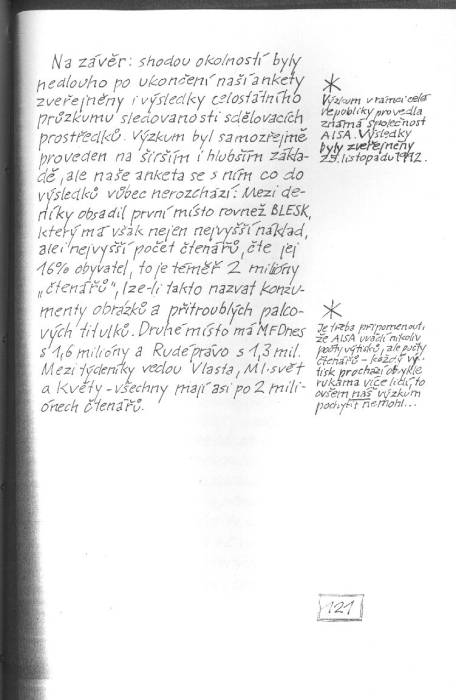 Na závěr: shodou okolností byly
nedlouho po ukončení naší ankety
zveřejněny i výsledky celostátního
průzkumu sledovanosti sdělovacích
prostředků. Výzkum byl samozřejmě
proveden na širším i hlubším zákla-
dě, ale naše anketa se s ním co do
výsledků vůbec nerozchází: Mezi de-
níky obsadil první místo rovněž BLESK,
který má však nejen nejvyšší náklad,
ale i nejvyšší počet čtenářů, čte jej
16% obyvatel, to je téměř 2 milióny
„čtenářů", lze-li takto nazvat konzu-
menty obrázků a přitroublých palco-
vých titulků. Druhé místo má MFDnes
s 1,6 milióny a Rudeprávo s 1,3 mil.
Mezi týdeníky vedou Vlasta, Ml.svět
a Květy - všechny mají asi po 2 mili-
ónech čtenářů.
*
Výzkum v rámci celé
republiky provedla
známá společnost
AISA. Výsledky
byly zveřejněny
listopadu
*
Je třeba připomenout,
že AISA uvádí nikoliv
počty výtisků, ale počty
čtenářů - každý vý-
tisk prochází obvykle
rukama více lidí, to
ovšem náš výzkum
pochytit nemohl...
121